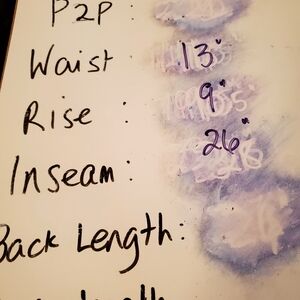 P2P :
Waist : 13"
Rise : 9"
Inseam : 26"
Back Length: